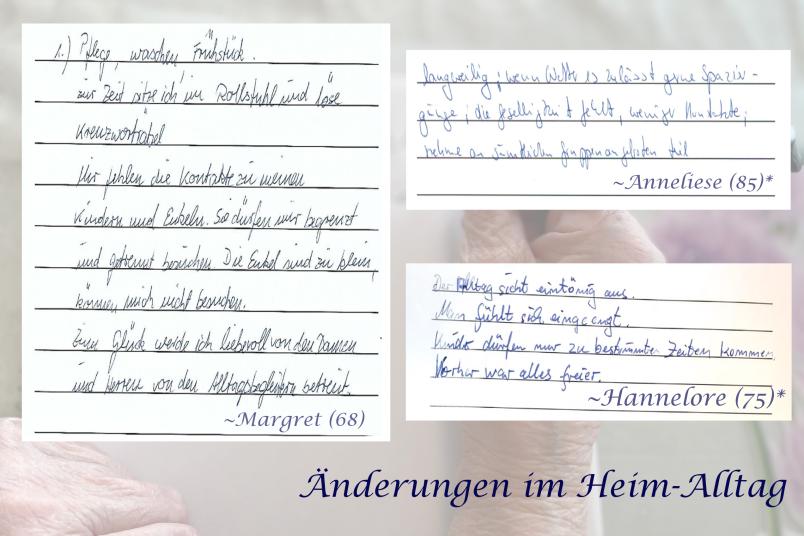 1.) Pflege, waschen, Frühstück.
zur Zeit sitze ich im Rollstuhl und löse
Kreuzworträtzel
Mir fehlen die Kontakte zu meinen
Kindern und Enkeln. Sie dürfen mir begrenzt
und getrennt besuchen. Die Enkel sind zu klein,
können mich nicht besuchen.
Zum Glück werde ich liebevoll von den Damen
und Herren von den Alltagsbegleitern betreut.
~Margret (68)
langweilig; wenn Wetter es zulässt gerne Spazier-
gänge; die Geselligkeit fehlt, weniger Kontakte;
nehme an sämtlichen Gruppenangeboten teil
~Anneliese (85)*
Der Alltag sieht eintönig aus.
Man fühlt sich eingeengt.
Kinder dürfen nur zu bestimmten Zeiten kommen.
Vorher war alles freier.
~Hannelore (75)*
Änderungen im Heim-Alltag